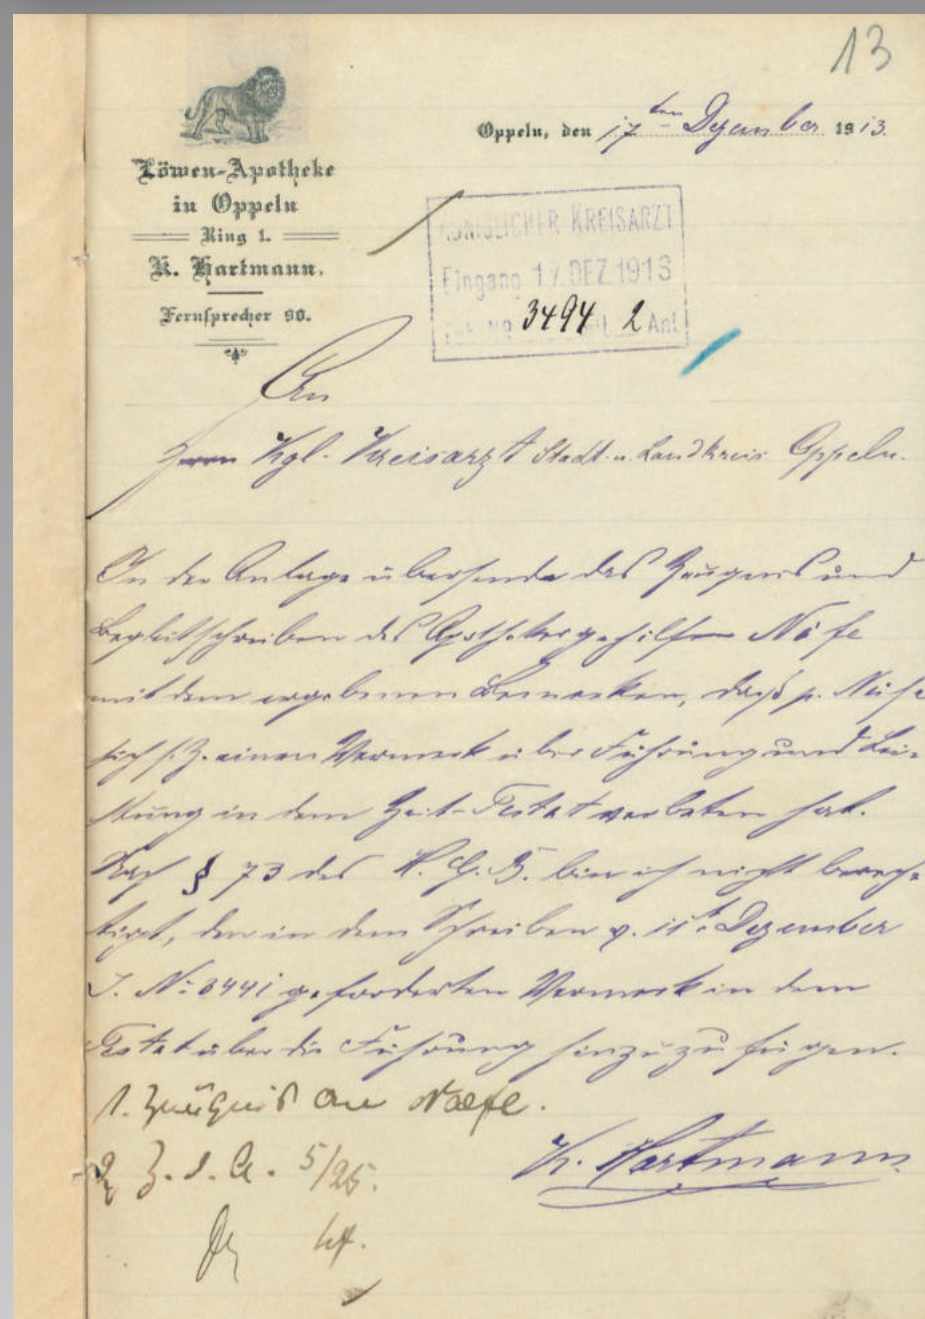 13
Oppeln, den 17ten Dezember 1913.
Löwen-Apotheke
in Oppeln
Ring 1.
K. Hartmann.
Fernsprecher 90.
KÖNIGLICHER KREISARZT
Eingang 17. DEZ. 1913
3494 2 Anl
An
Herrn Kgl. Kreisarzt Stadt- u. Landkreis Oppeln.
In der Anlage übersende das Zeugnis und
Begleitschreiben des Apothekergehilfen Näfe
mit dem ergebenen Bemerken, daß p. Näfe
sich s. Z. einen Vermerk über Führung und Lei-
stung in dem Zeit-Testat verbeten hat.
Nach § 73 des H. G. B. bin ich nicht berech-
tigt, den in dem Schreiben v. 11t. Dezember
J. No 3441 geforderten Vermerk in dem
Testat über die Führung hinzuzufügen.
1. Zeugnis an Naefe.
K. Hartmann.
2 Z. d. A. 5/25.